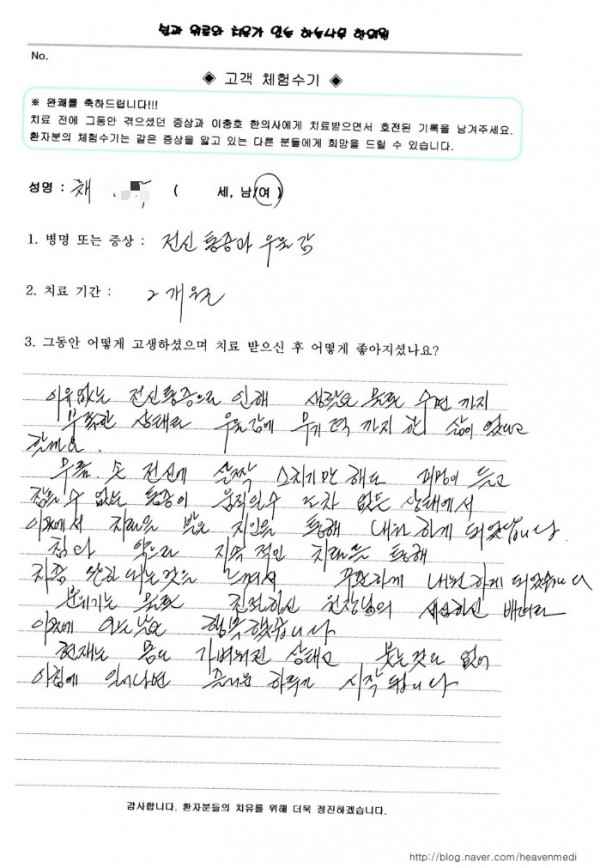 No.
◈ 고객 체험수기 ◈
※ 완쾌를 축하드립니다!!!
치료 전에 그동안 겪으셨던 증상과 이충호 한의사에게 치료받으면서 호전된 기록을 남겨주세요.
환자분의 체험수기는 같은 증상을 앓고 있는 다른 분들에게 희망을 드릴 수 있습니다.
성명 : 채 ( 세, 남/여 )
1. 병명 또는 증상 : 전신통증과 우울감
2. 치료 기간 : 2개월
3. 그동안 어떻게 고생하셨으며 치료 받으신 후 어떻게 좋아지셨나요?
이유없는 전신통증으로 인해 생활은 물론 수면까지
부족한 상태로 우울감에 무기력까지 한 삶이 었다고
할까요.
무릎 손 전신에 살짝 스치기만 해도 멍이 들고
잠들 수 없는 통증이 움직일수 조차 없는 상태에서
이곳에서 치료를 받은 지인을 통해 내원하게 되었습니다.
침과 약으로 지속적인 치료를 통해
차츰 나아지는것을 느껴서 꾸준하게 내원하게 되었습니다
분위기는 물론 친절하신 원장님의 세심하신 배려로
이곳에 오는날은 행복했습니다
현재는 몸도 가벼워진 상태고 붓는것도 없어
아침에 일어나면 즐거운 하루가 시작됩니다
감사합니다. 환자분들의 치유를 위해 더욱 정진하겠습니다.
http://blog.naver.com/heavenmedi